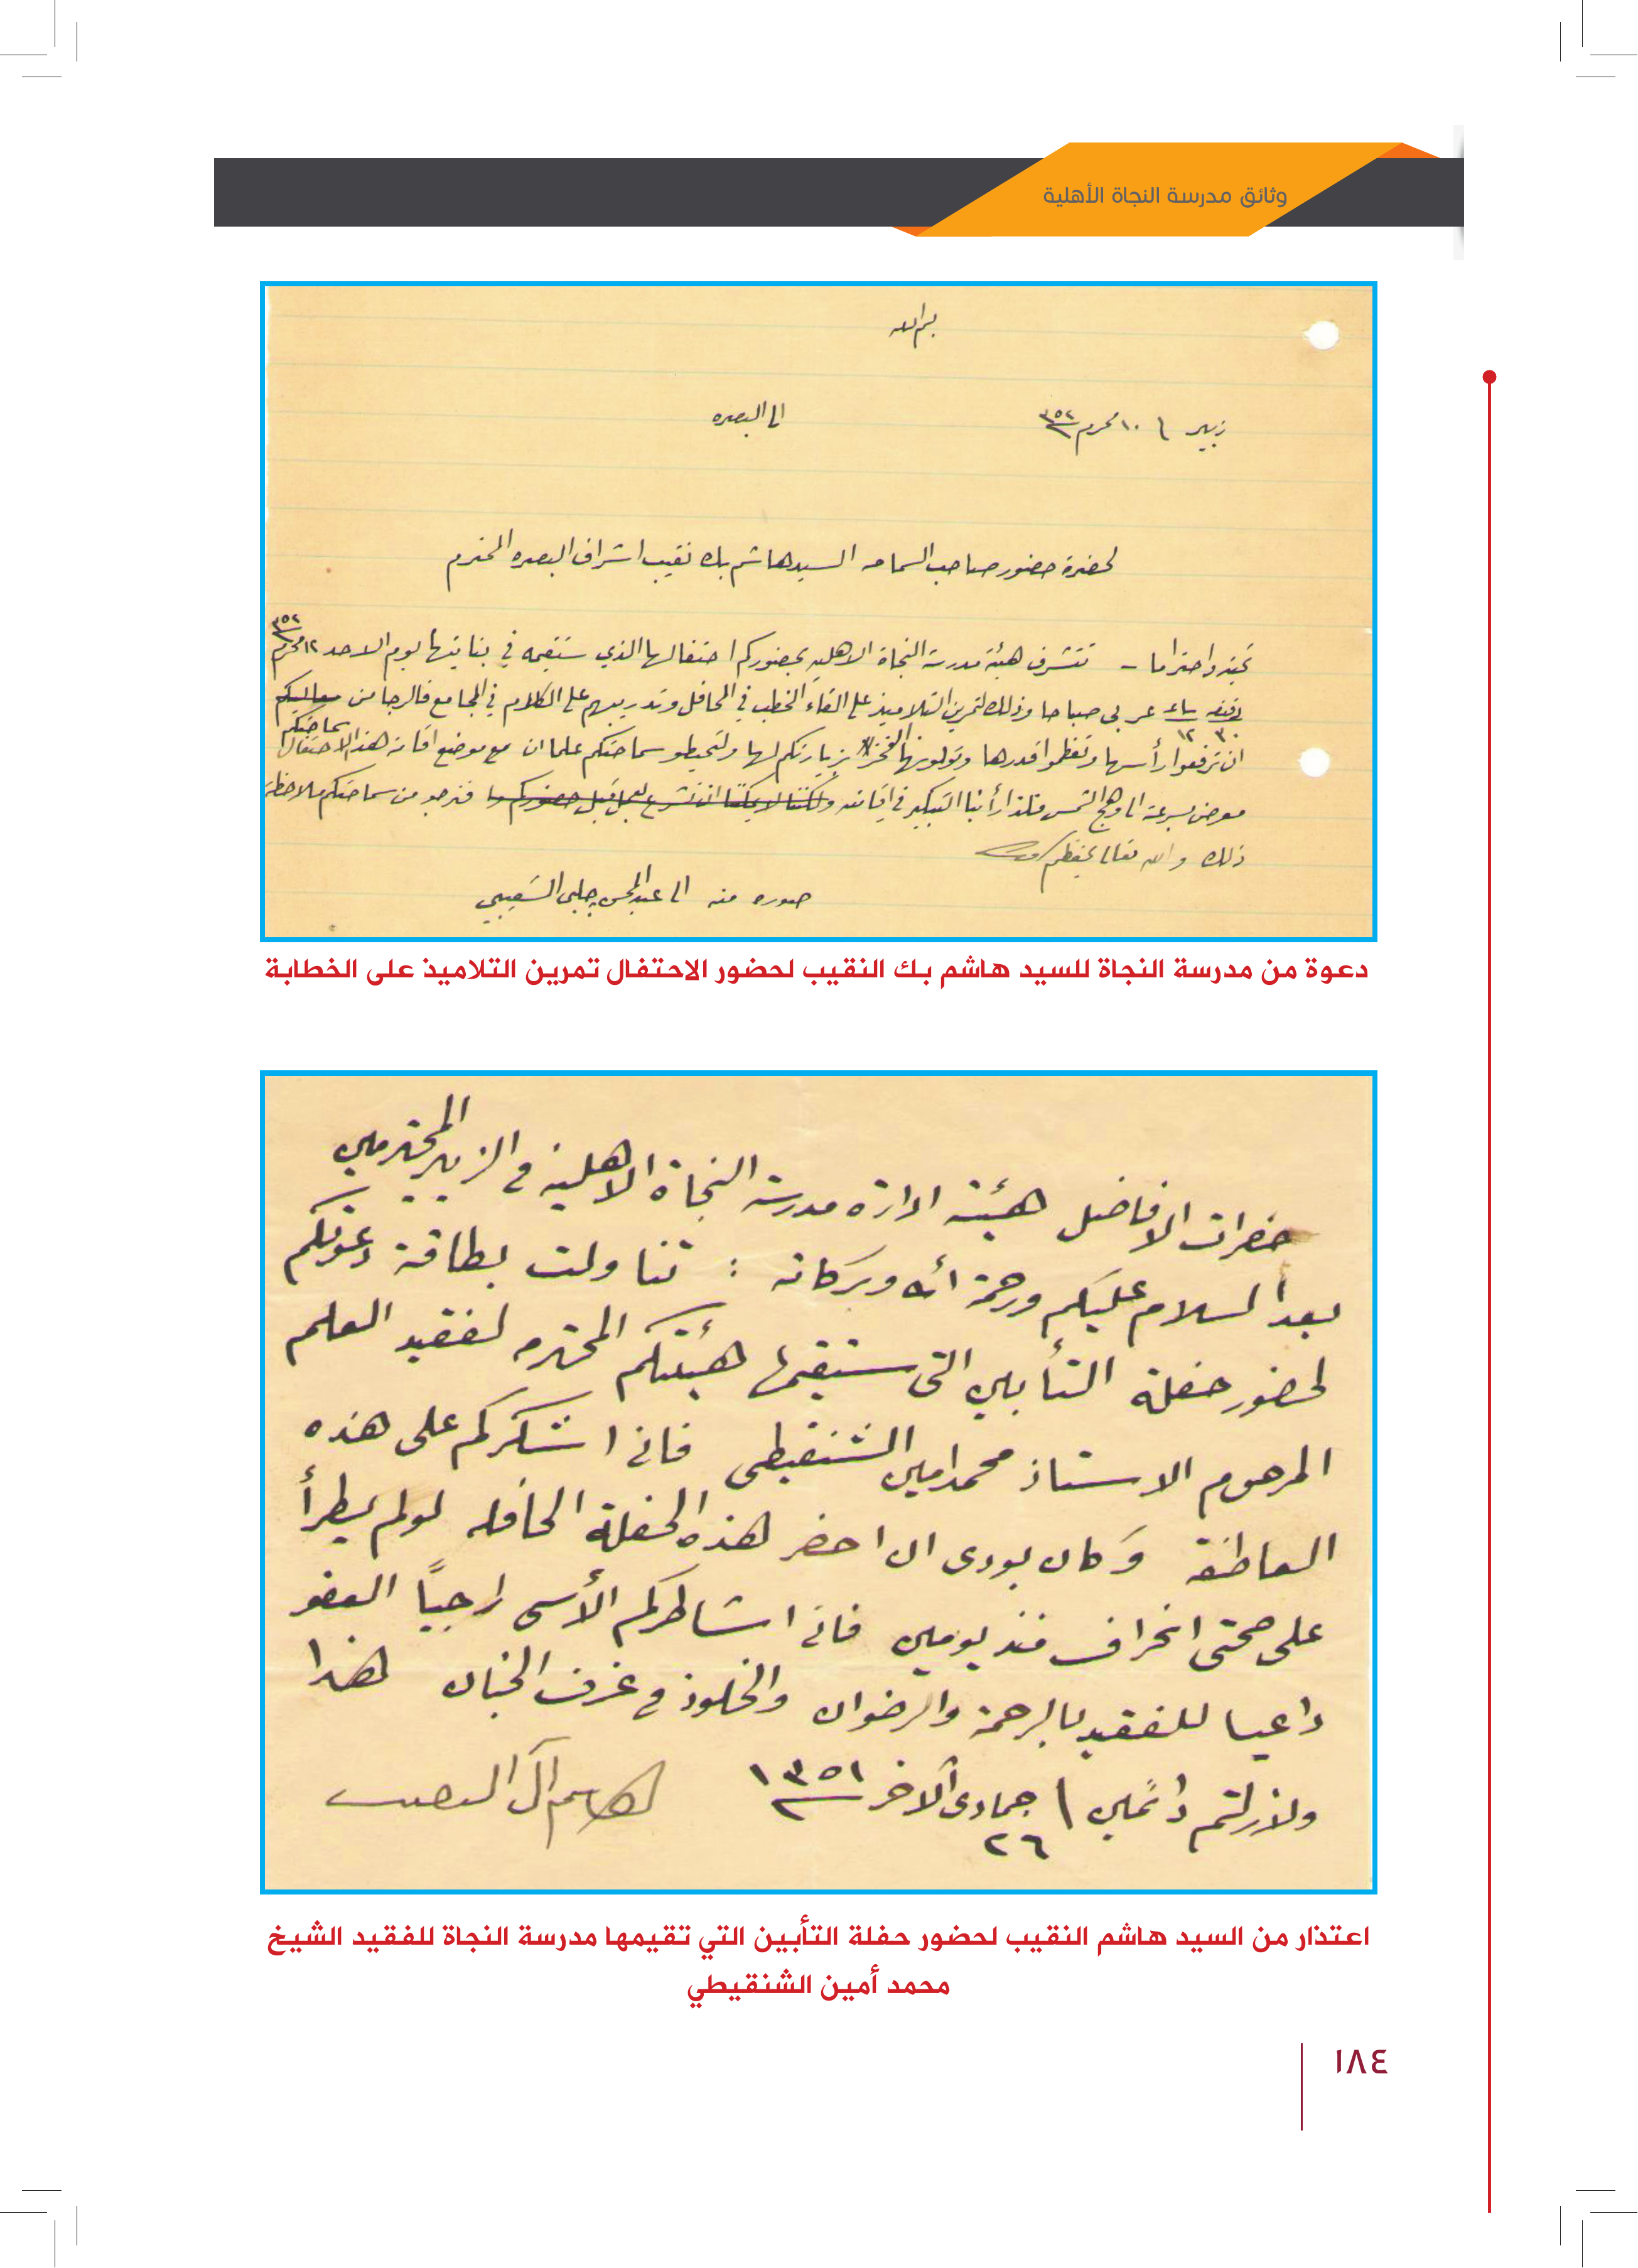 وثائق مدرسة النجاة الأهلية
بسم الله
زبير \ ١٠ محرم ٣٥٢
الى البصره
لحضرة حضور صاحب السماحه السيد هاشم بك نقيب اشراف البصره المحترم
تحية واحتراما – تتشرف هيئة مدرسة النجاة الاهليه بحضوركم احتفالها الذي ستقيمه في بنايتها يوم الاحد ١٢ محرم ٣٥٢
دقيقه ٣٠ ساعه ١٢ عربي صباحا وذلك لتمرين التلاميذ على القاء الخطب في المحافل وتدريبهم على الكلام في المجامع فالرجا من معاليكم سماحتكم
ان ترفعوا رأسها وتعظموا قدرها وتولونها الفخر بزيارتكم لها ولتحيطو سماحتكم علما ان موضع اقامة هذا الاحتفال
معرض بسرعة الى وهج الشمس فلذا رأينا التبكير في اقامته ولكننا لا يمكننا ان نشرع بعمل قبل حضوركم فنرجو من سماحتكم ملاحظة
ذلك والله تعالى يحفظكم
صوره منه الى عبد المحسن چلبي الشعيبي
دعوة من مدرسة النجاة للسيد هاشم بك النقيب لحضور الاحتفال تمرين التلاميذ على الخطابة
حضرات الافاضل هيئة ادارة مدرسة النجاة الاهلية في الزبير المحترمين
بعد السلام عليكم ورحمة الله وبركاته : تناولت بطاقة دعوتكم
لحضور حفلة التأبين التى ستقيمها هيئتكم المحترمه لفقيد العلم
المرحوم الاستاذ محمد امين الشنقيطى فانى اشكركم على هذه
العاطفة وكان بودى ان احضر هذه الحفلة الحافله لو لم يطرأ
على صحتى انحراف منذ يومين فانى اشاطركم الأسى راجيًا العفو
داعيا للفقيد بالرحمة والرضوان والخلود فى غرف الجنان هذا
ولازلتم دائمين \ ٢٦ جمادى الآخر ١٣٥١
هاشم آل النقيب
اعتذار من السيد هاشم النقيب لحضور حفلة التأبين التي تقيمها مدرسة النجاة للفقيد الشيخ
محمد أمين الشنقيطي
١٨٤